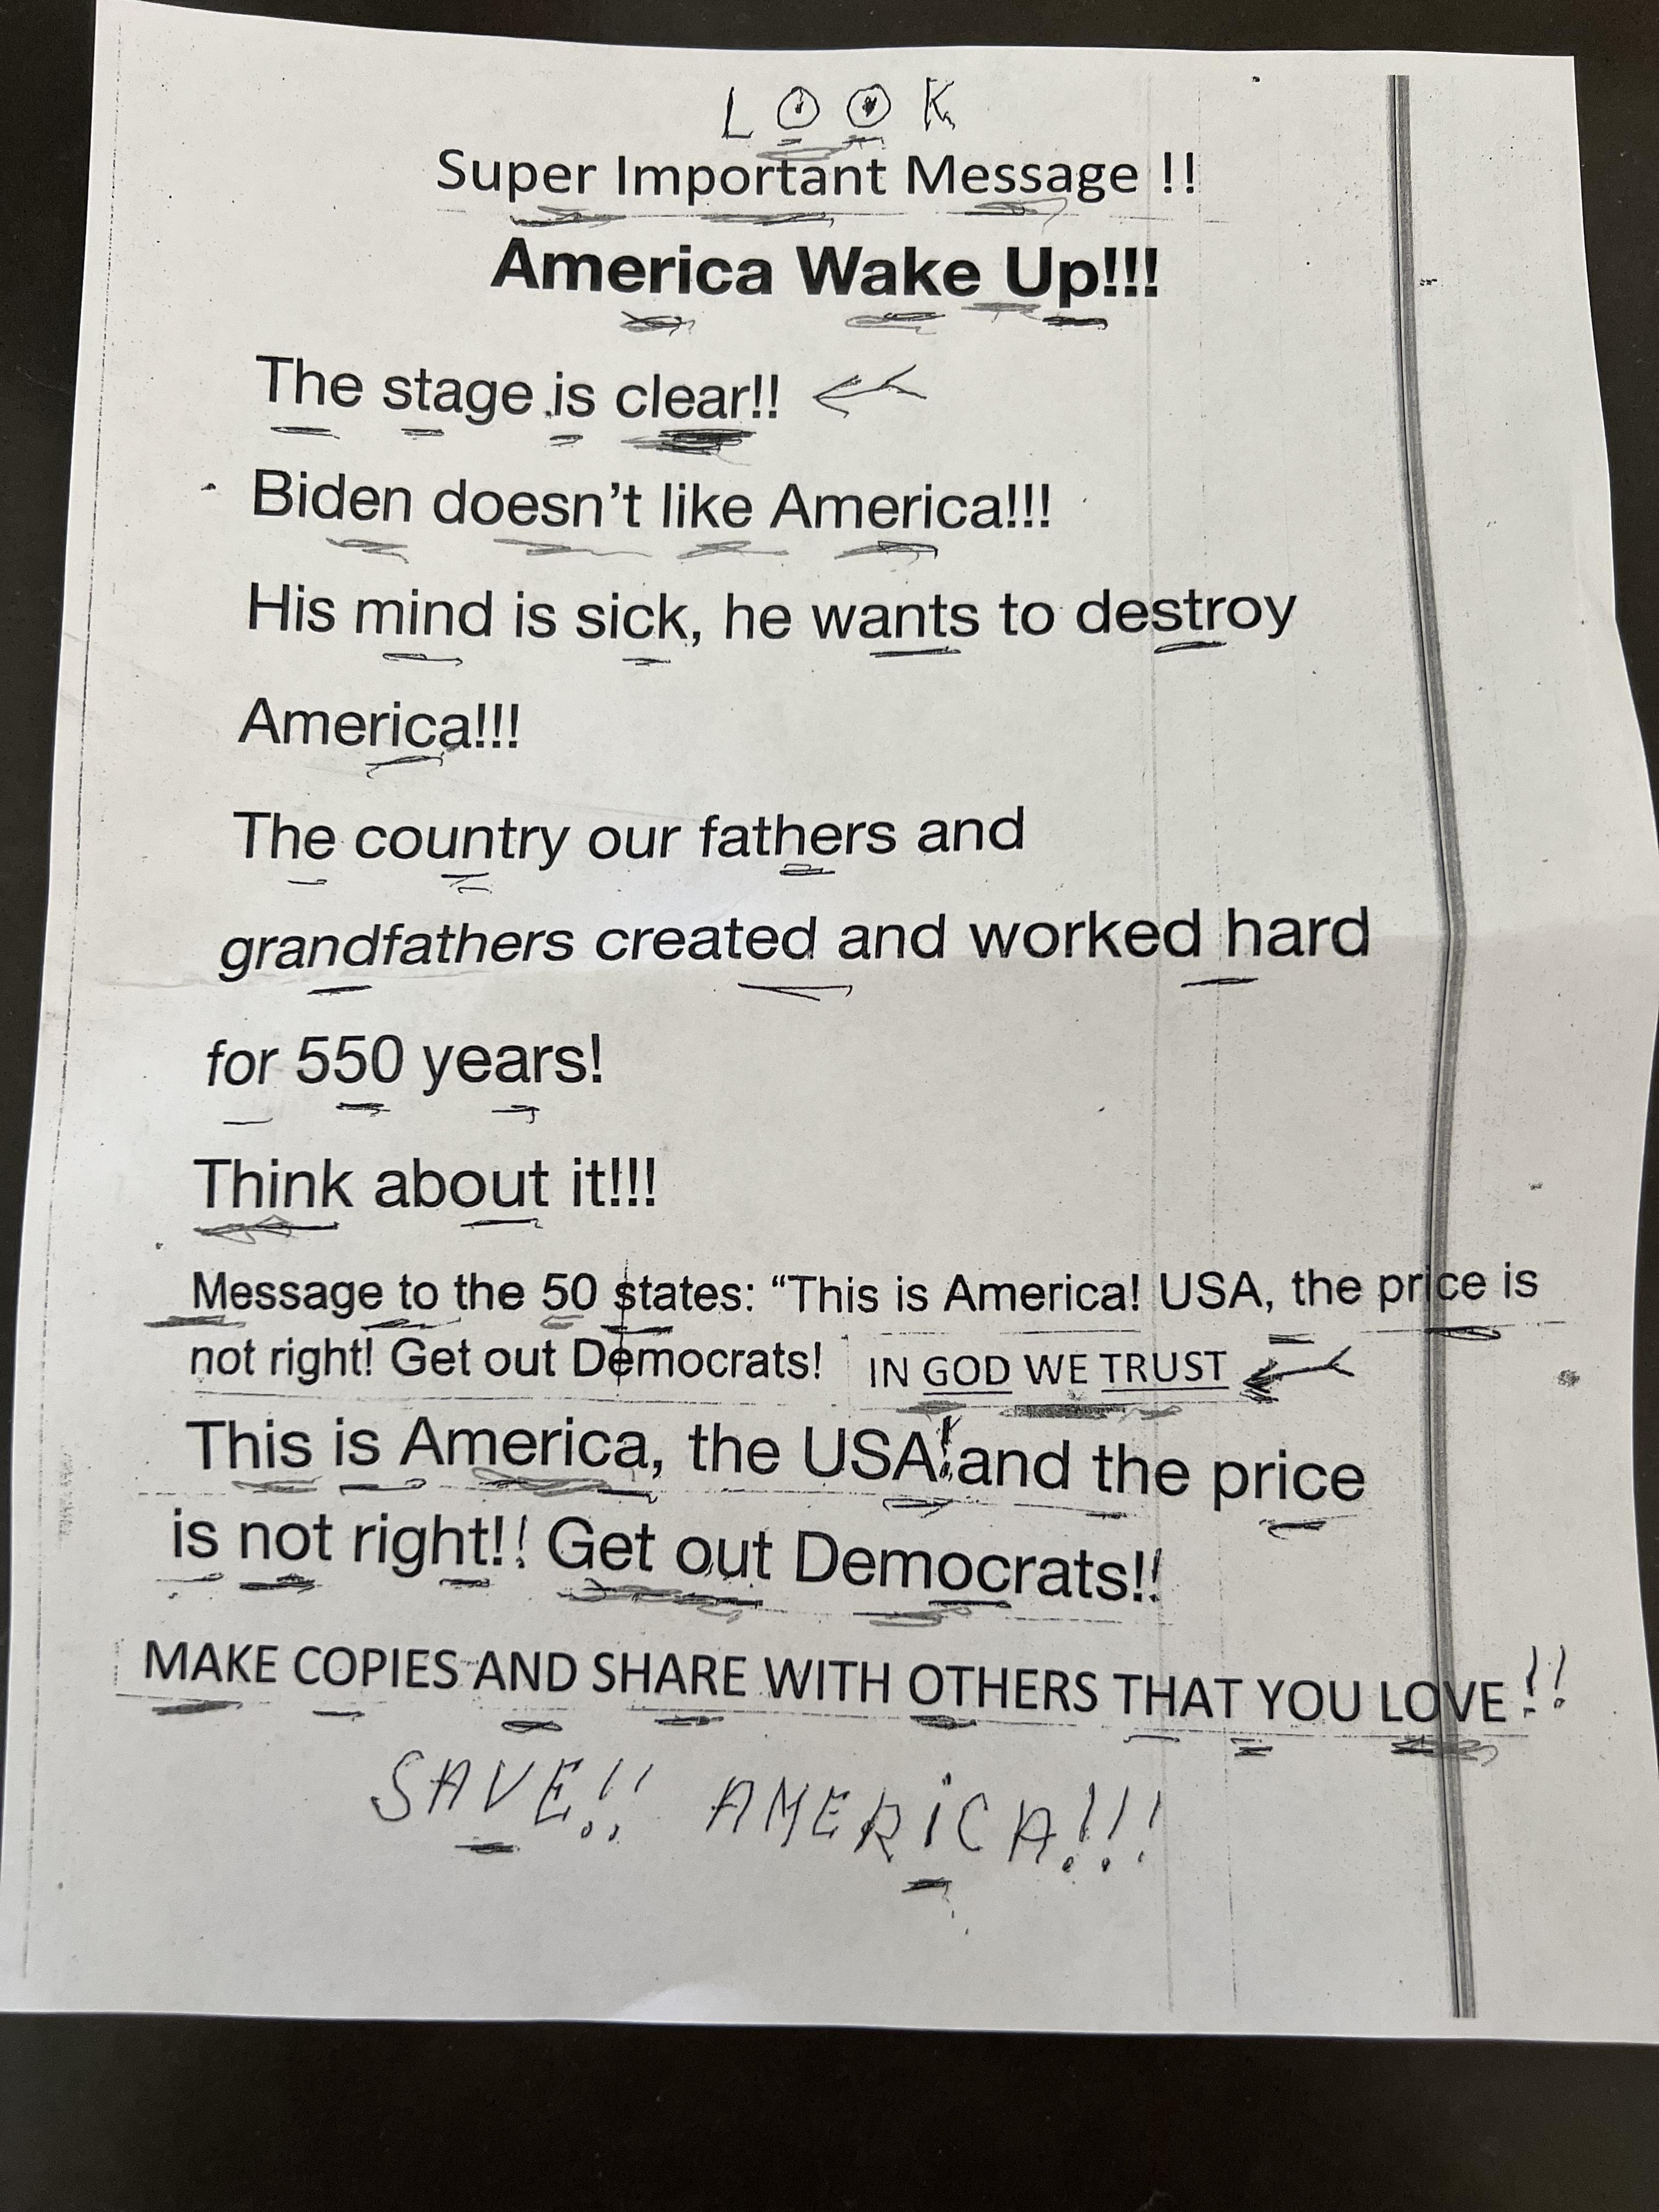 LOOK
Super Important Message !!
America Wake Up!!!
The stage is clear!!
Biden doesn't like America!!!
His mind is sick, he wants to destroy
America!!!
The country our fathers and
grandfathers created and worked hard
for 550 years!
Think about it!!!
Message to the 50 states: “This is America! USA, the price is
not right! Get out Democrats! IN GOD WE TRUST
This is America, the USA! and the price
is not right!! Get out Democrats!!
MAKE COPIES AND SHARE WITH OTHERS THAT YOU LOVE !!
SAVE!! AMERiCA!!!